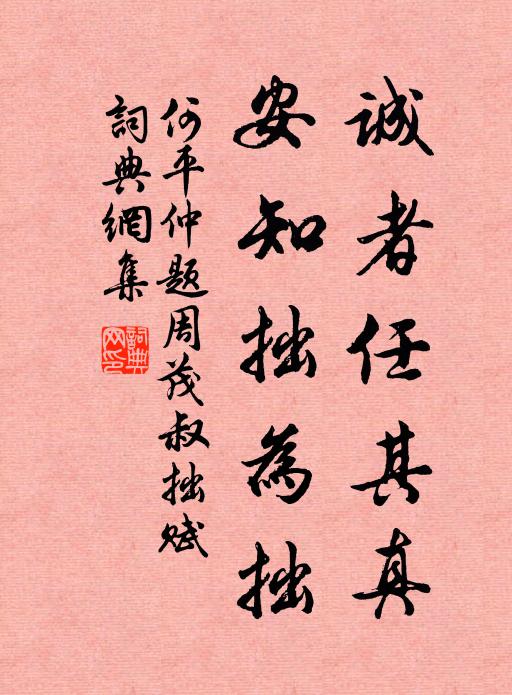 誠者任其真
安知拙為拙
何平仲題周茂叔拙賦
詞典網集
詞典網印